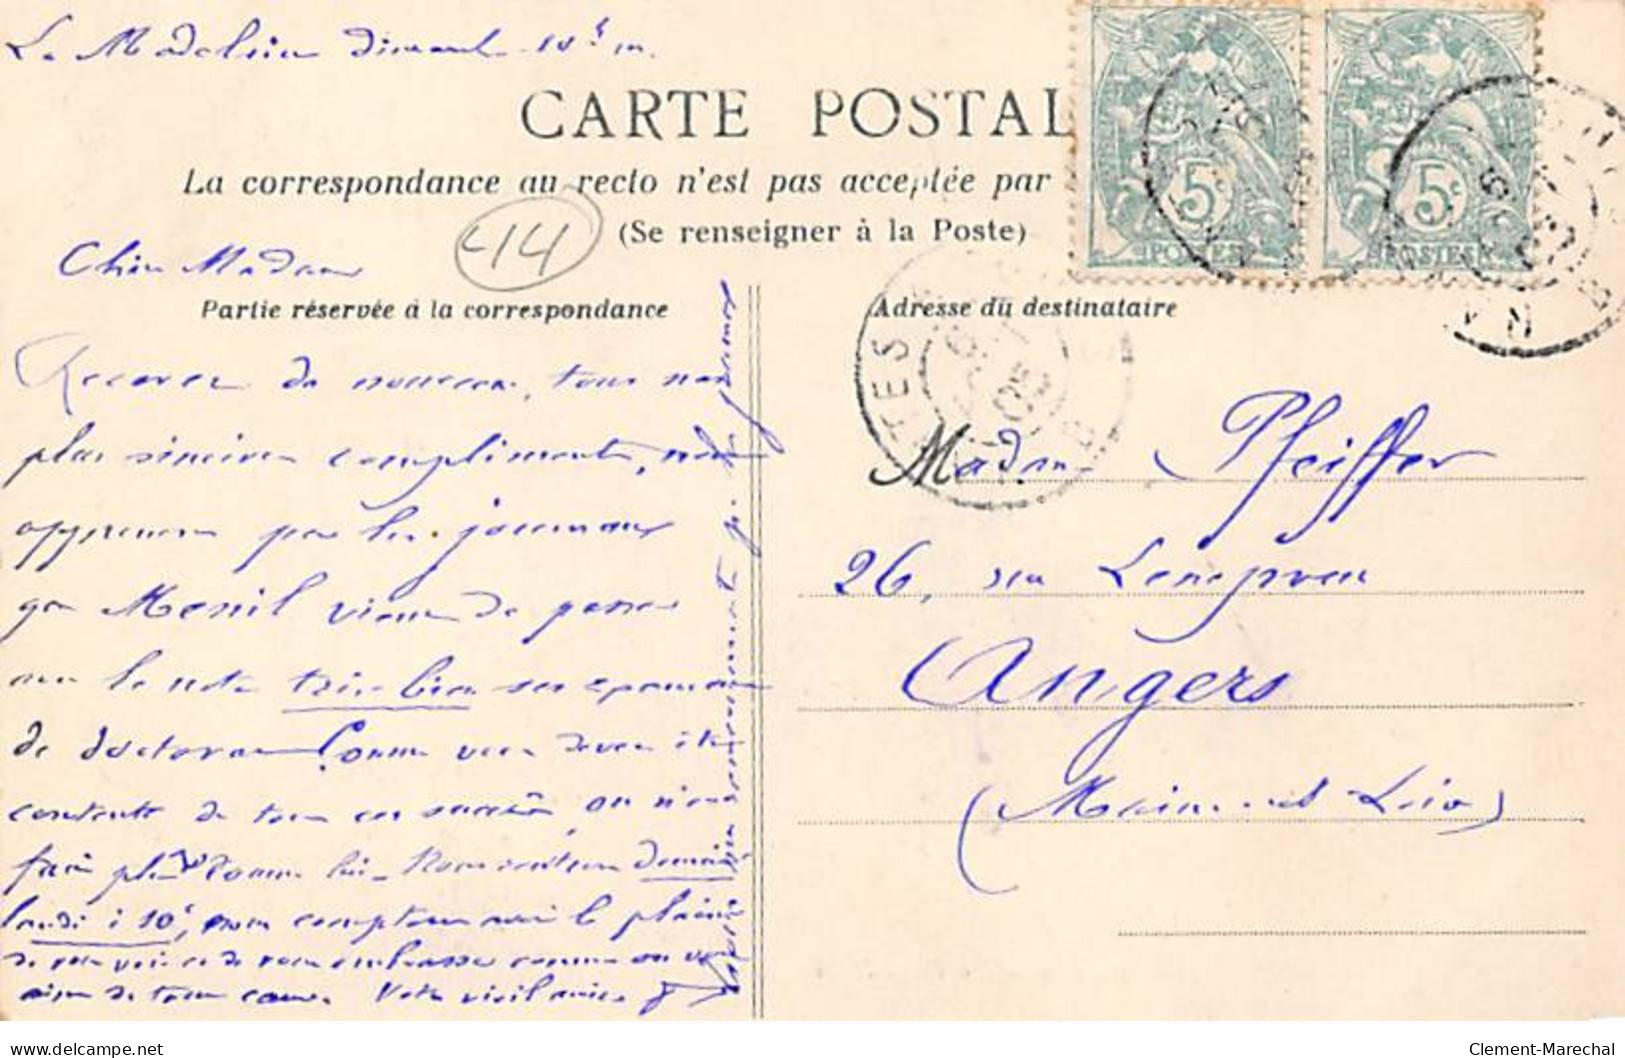 La Madeleine Dimanche 10h m.
CARTE POSTAL
La correspondance au recto n'est pas acceptée par
(Se renseigner à la Poste)
44
5c 5c
POSTES POSTES
Chère Madame
Partie réservée à la correspondance
Adresse du destinataire
Recevez de nouveau, tous nos
plus sincères compliments, nous
apprenons par les journaux
que Mesnil vient de passer
avec la note très bien ses examens
de doctorat Comme vous devez être
contente de tous ces succès, on n'en
fait plus comme lui. Nous rentrons demain
lundi à 10h, nous comptons avoir le plaisir
de vous voir et de vous embrasser comme on vous
aime de tout cœur. Votre vieil ami
Madame Pfeiffer
26, rue Lenepveu
Angers
(Maine et Loire)
delcampe.net
Clement-Marechal